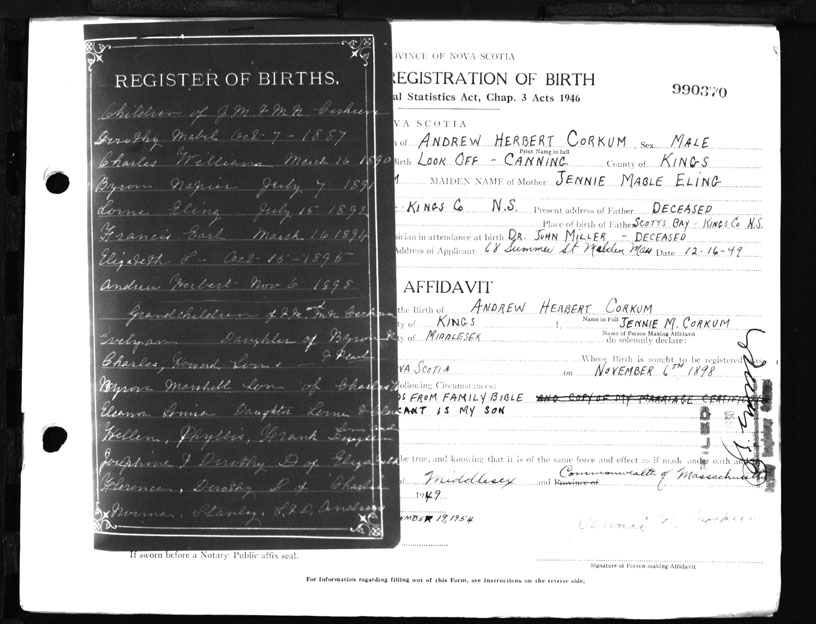 REGISTER OF BIRTHS.
Children of J. M. & M. A. Corkum
Dorothy Mabel Oct 7 - 1887
Charles William March 16 1890
Byron Napier July 7 1891
Lorne Eling July 15 1892
Francis Earl March 16 1894
Elizabeth L - Oct 15 - 1896
Andrew Herbert Nov 6 1898
Grandchildren of
Daughter of Byron
Charles, Howard Sons
Byron Marshall Son of Charles
Eleanor Louisa Daughter Lorne &
Hellen, Phyllis, Frank
Josephine & Dorothy D of Elizabeth
Florence, Dorothy D of Charles
Norman, Stanley, Andrew
OVINCE OF NOVA SCOTIA
REGISTRATION OF BIRTH
990370
al Statistics Act, Chap. 3 Acts 1946
VA SCOTIA
of ANDREW HERBERT CORKUM, Sex MALE
Print Name in full
Birth LOOK OFF - CANNING County of KINGS
MAIDEN NAME of Mother JENNIE MABLE ELING
- KINGS CO N.S. Present address of Father DECEASED
Place of birth of Father SCOTTS BAY - KINGS CO N.S.
sician in attendance at birth DR. JOHN MILLER - DECEASED
Address of Applicant 68 Summer St Malden Mass Date 12-16-49
AFFIDAVIT
the Birth of ANDREW HERBERT CORKUM
Name in Full
ty of KINGS I, JENNIE M. CORKUM
Name of Person Making Affidavit
ty of MIDDLESEX do solemnly declare:
Whose Birth is sought to be registered
VA SCOTIA on NOVEMBER 6TH 1898
Following Circumstances:
DS FROM FAMILY BIBLE AND COPY OF MY MARRIAGE CERTIFI
CANT IS MY SON
FILED
be true, and knowing that it is of the same force and effect as if made under oath and
of Middlesex and Province of Commonwealth of Massachusetts
1949
EMBER 19, 1954
Jennie M. Corkum
If sworn before a Notary Public affix seal.
Signature of Person making Affidavit
For Information regarding filling out of this Form, see Instructions on the reverse side.